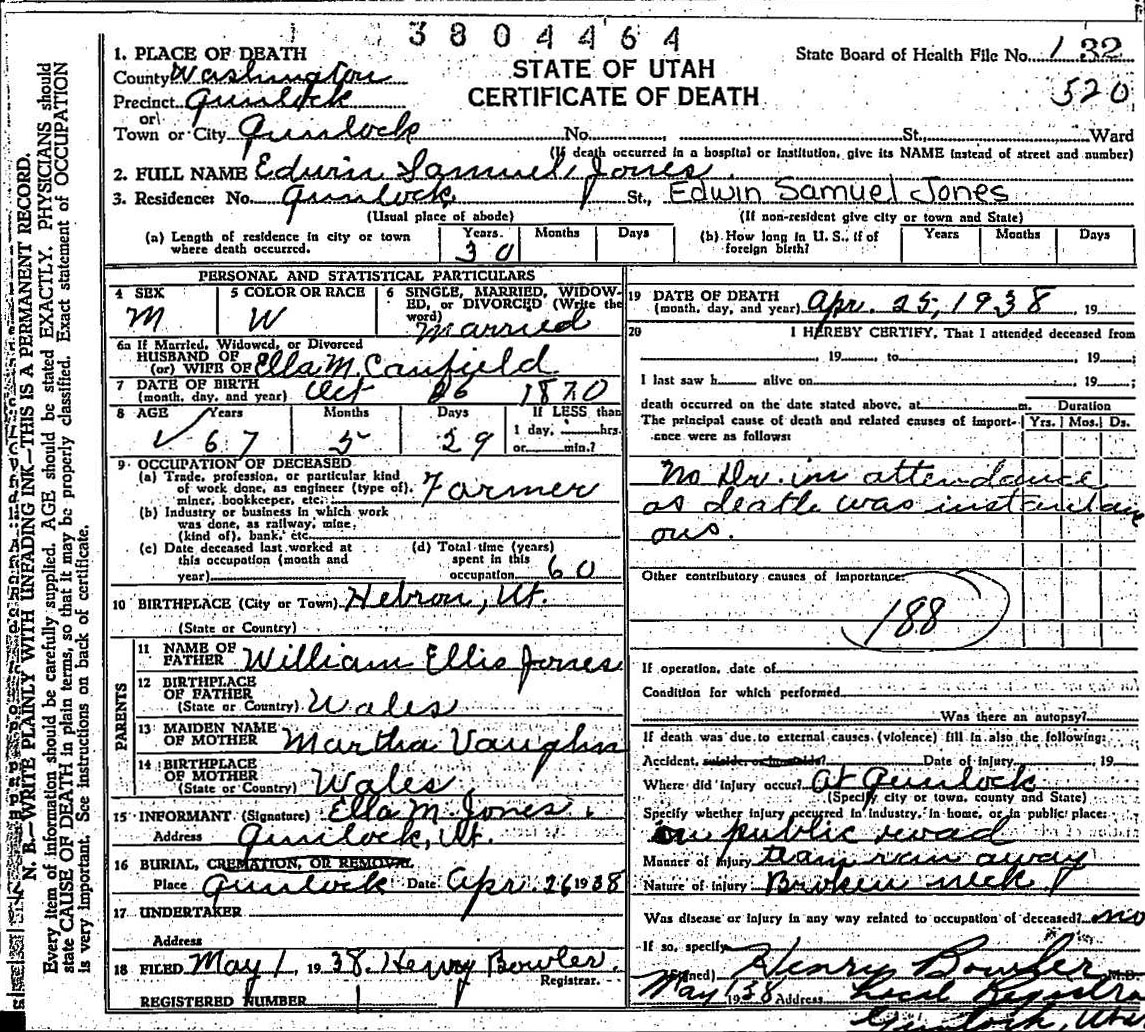 3804464
State Board of Health File No. 132
520
STATE OF UTAH
CERTIFICATE OF DEATH
N. B.—WRITE PLAINLY WITH UNFADING INK—THIS IS A PERMANENT RECORD.
Every item of information should be carefully supplied. AGE should be stated EXACTLY. PHYSICIANS should
state CAUSE OF DEATH in plain terms, so that it may be properly classified. Exact statement of OCCUPATION
is very important. See instructions on back of certificate.
1. PLACE OF DEATH
County Washington
Precinct Gunlock
or
Town or City Gunlock No. St. Ward
(If death occurred in a hospital or institution, give its NAME instead of street and number)
2. FULL NAME Edwin Samuel Jones
3. Residence: No. Gunlock St., Edwin Samuel Jones
(Usual place of abode) (If non-resident give city or town and State)
(a) Length of residence in city or town where death occurred. Years 30 Months Days (b) How long in U. S., if of foreign birth? Years Months Days
PERSONAL AND STATISTICAL PARTICULARS
4 SEX M
5 COLOR OR RACE W
6 SINGLE, MARRIED, WIDOWED, or DIVORCED (Write the word) Married
6a If Married, Widowed, or Divorced
HUSBAND OF
(or) WIFE OF Ella M. Canfield
7 DATE OF BIRTH
(month, day, and year) Oct 26 1870
8 AGE Years 67 Months 5 Days 29 If LESS than
1 day, hrs.
or min.?
9 OCCUPATION OF DECEASED
(a) Trade, profession, or particular kind
of work done, as engineer (type of),
miner, bookkeeper, etc. Farmer
(b) Industry or business in which work
was done, as railway, mine,
(kind of), bank, etc.
(c) Date deceased last worked at
this occupation (month and
year)
(d) Total time (years)
spent in this
occupation 60
10 BIRTHPLACE (City or Town) Hebron, Ut.
(State or Country)
PARENTS
11 NAME OF
FATHER William Ellis Jones
12 BIRTHPLACE
OF FATHER
(State or Country) Wales
13 MAIDEN NAME
OF MOTHER Martha Vaughn
14 BIRTHPLACE
OF MOTHER
(State or Country) Wales
15 INFORMANT (Signature) Ella M. Jones
Address Gunlock, Ut.
16 BURIAL, CREMATION, OR REMOVAL
Place Gunlock Date Apr. 26 1938
17 UNDERTAKER
Address
18 FILED May 1, 1938. Henry Bowler
Registrar.
REGISTERED NUMBER 1
19 DATE OF DEATH
(month, day, and year) Apr. 25, 1938 , 19
20 I HEREBY CERTIFY, That I attended deceased from
, 19 , to , 19 ;
I last saw h alive on , 19 ;
death occurred on the date stated above, at m. Duration
The principal cause of death and related causes of importance were as follows: Yrs. Mos. Ds.
No Dr. in attendance
as death was instantan
ous.
Other contributory causes of importance:
188
If operation, date of
Condition for which performed
Was there an autopsy?
If death was due to external causes (violence) fill in also the following:
Accident, suicide, or homicide? Date of injury , 19
Where did injury occur? At Gunlock
(Specify city or town, county and State)
Specify whether injury occurred in industry, in home, or in public place:
on public road
Manner of injury team ran away
Nature of injury Broken neck
Was disease or injury in any way related to occupation of deceased? no
If so, specify
(Signed) Henry Bowler M.D.
May 1938 Address Local Registra
Gunlock, Utah